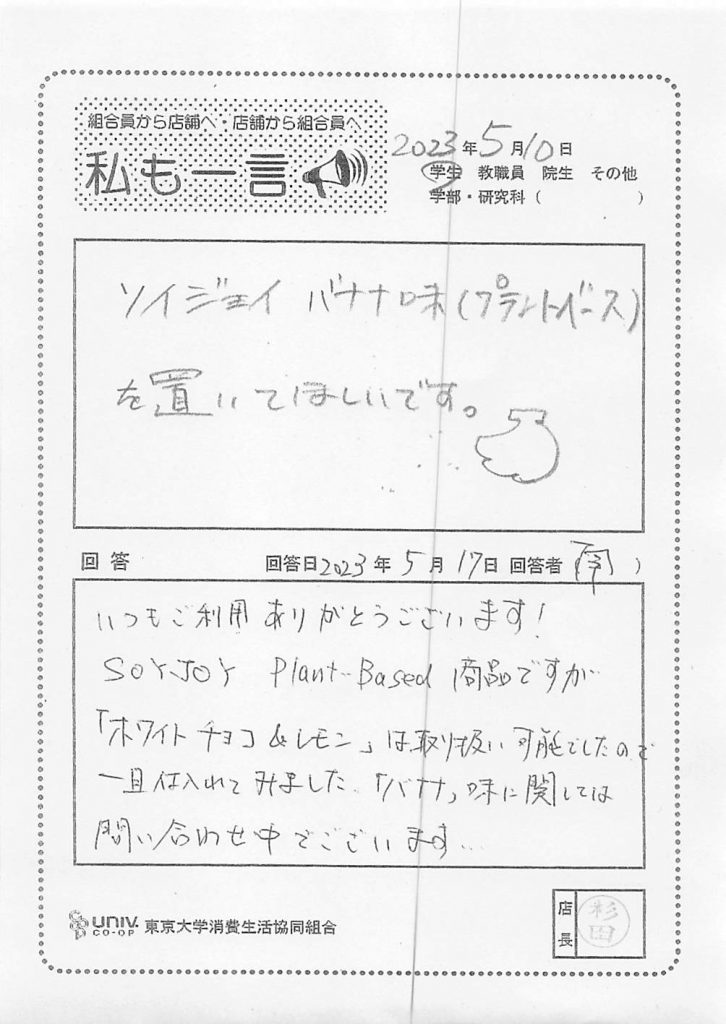 組合員から店舗へ・店舗から組合員へ
私も一言
2023年5月10日
学生 教職員 院生 その他
学部・研究科( )
ソイジョイ バナナ味(プラントベース)
を置いてほしいです。
回答 回答日2023年5月17日 回答者 )
いつもご利用ありがとうございます!
SOYJOY Plant-Based 商品ですが
「ホワイトチョコ&レモン」は取り扱い可能でしたので
一旦仕入れてみました。「バナナ」味に関しては
問い合わせ中でございます...
UNIV. CO-OP 東京大学消費生活協同組合
店長 杉田